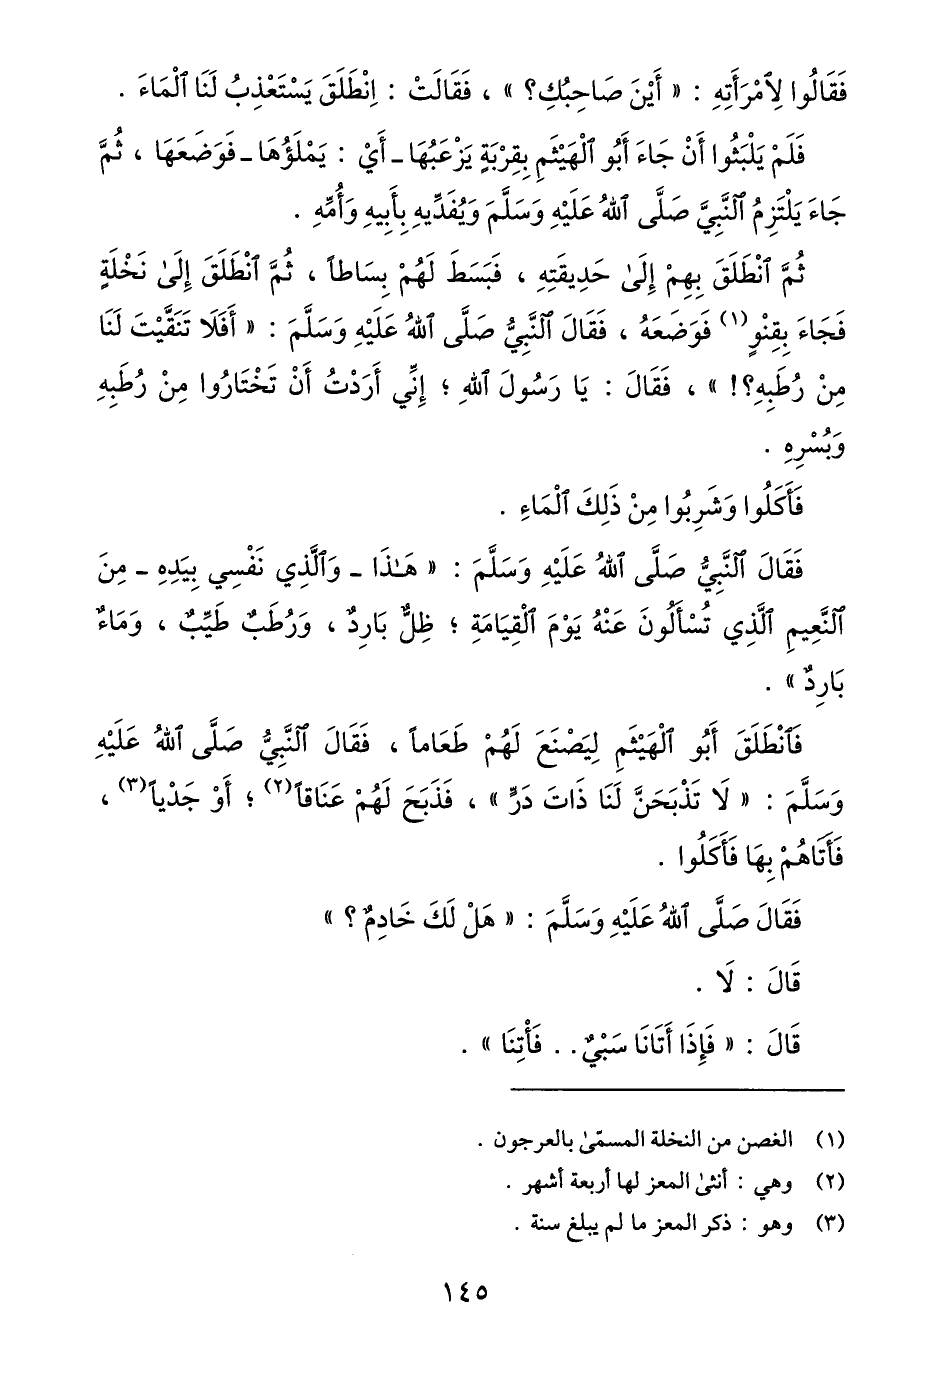 فَقَالُوا لِامْرَأَتِهِ : « أَيْنَ صَاحِبُكِ؟ » ، فَقَالَتْ : اِنْطَلَقَ يَسْتَعْذِبُ لَنَا ٱلْمَاءَ .
فَلَمْ يَلْبَثُوا أَنْ جَاءَ أَبُو ٱلْهَيْثَمِ بِقِرْبَةٍ يَزْعَبُهَا ـ أَيْ : يَمْلَؤُهَا ـ فَوَضَعَهَا ، ثُمَّ
جَاءَ يَلْتَزِمُ ٱلنَّبِيَّ صَلَّى ٱللهُ عَلَيْهِ وَسَلَّمَ وَيُفَدِّيهِ بِأَبِيهِ وَأُمِّهِ .
ثُمَّ ٱنْطَلَقَ بِهِمْ إِلَىٰ حَدِيقَتِهِ ، فَبَسَطَ لَهُمْ بِسَاطاً ، ثُمَّ ٱنْطَلَقَ إِلَىٰ نَخْلَةٍ
فَجَاءَ بِقِنْوٍ(١) فَوَضَعَهُ ، فَقَالَ ٱلنَّبِيُّ صَلَّى ٱللهُ عَلَيْهِ وَسَلَّمَ : « أَفَلَا تَنَقَّيْتَ لَنَا
مِنْ رُطَبِهِ؟! » ، فَقَالَ : يَا رَسُولَ ٱللهِ ؛ إِنِّي أَرَدْتُ أَنْ تَخْتَارُوا مِنْ رُطَبِهِ
وَبُسْرِهِ .
فَأَكَلُوا وَشَرِبُوا مِنْ ذَلِكَ ٱلْمَاءِ .
فَقَالَ ٱلنَّبِيُّ صَلَّى ٱللهُ عَلَيْهِ وَسَلَّمَ : « هَـٰذَا ـ وَٱلَّذِي نَفْسِي بِيَدِهِ ـ مِنَ
ٱلنَّعِيمِ ٱلَّذِي تُسْأَلُونَ عَنْهُ يَوْمَ ٱلْقِيَامَةِ ؛ ظِلٌّ بَارِدٌ ، وَرُطَبٌ طَيِّبٌ ، وَمَاءٌ
بَارِدٌ » .
فَٱنْطَلَقَ أَبُو ٱلْهَيْثَمِ لِيَصْنَعَ لَهُمْ طَعَاماً ، فَقَالَ ٱلنَّبِيُّ صَلَّى ٱللهُ عَلَيْهِ
وَسَلَّمَ : « لَا تَذْبَحَنَّ لَنَا ذَاتَ دَرٍّ » ، فَذَبَحَ لَهُمْ عَنَاقاً(٢) ؛ أَوْ جَدْياً(٣) ،
فَأَتَاهُمْ بِهَا فَأَكَلُوا .
فَقَالَ صَلَّى ٱللهُ عَلَيْهِ وَسَلَّمَ : « هَلْ لَكَ خَادِمٌ ؟ »
قَالَ : لَا .
قَالَ : « فَإِذَا أَتَانَا سَبْيٌ . . فَأْتِنَا » .
(١) الغصن من النخلة المسمّىٰ بالعرجون .
(٢) وهي : أنثىٰ المعز لها أربعة أشهر .
(٣) وهو : ذكر المعز ما لم يبلغ سنة .
١٤٥